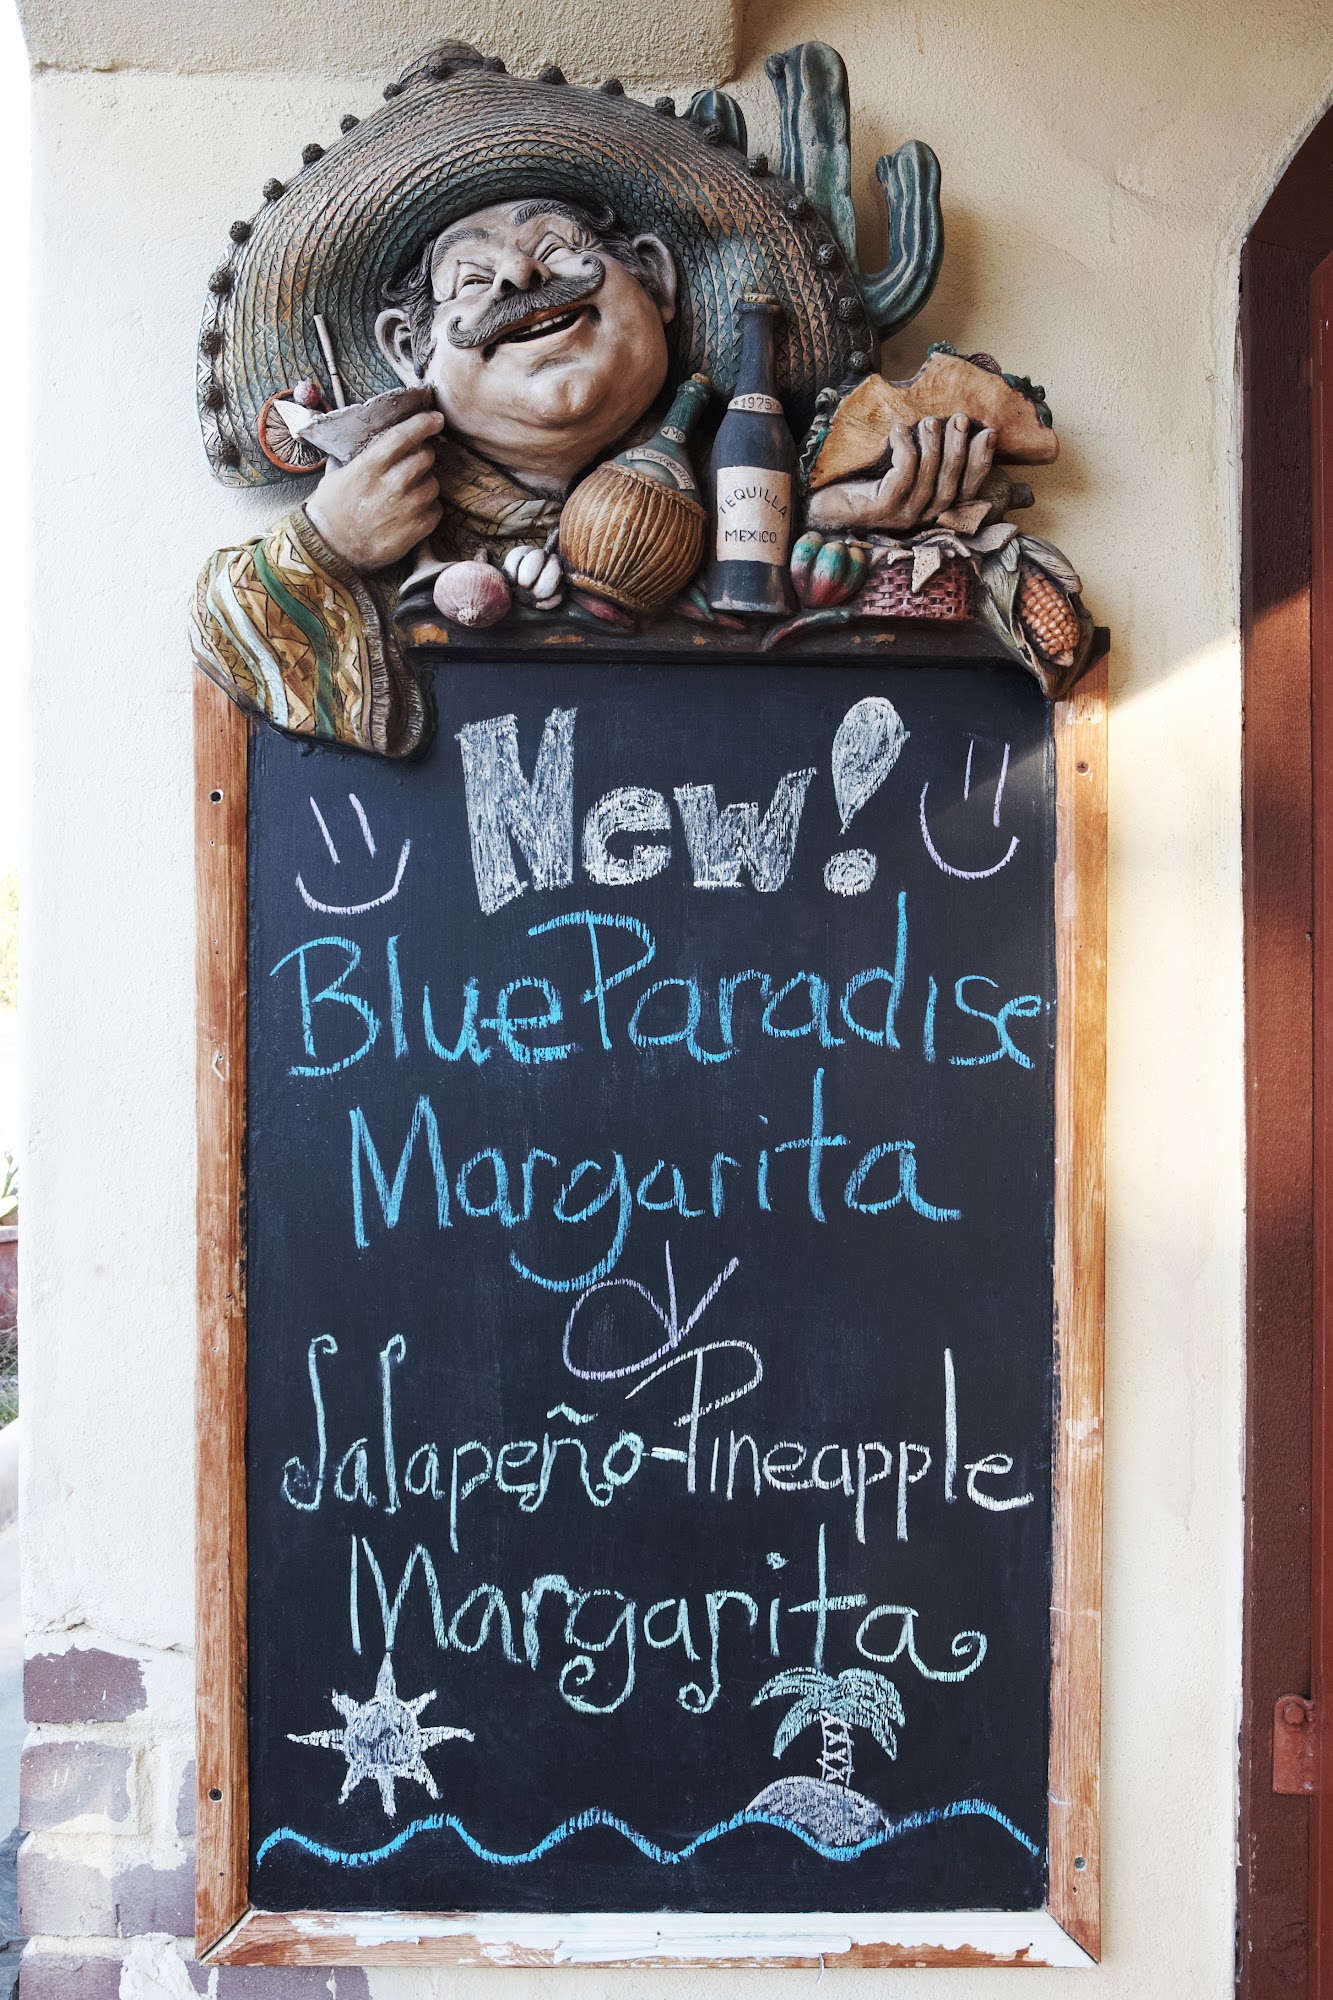 *1975*
Margarita
TEQUILLA
MEXICO
New!
Blue Paradise
Margarita
&
Jalapeño-Pineapple
Margarita